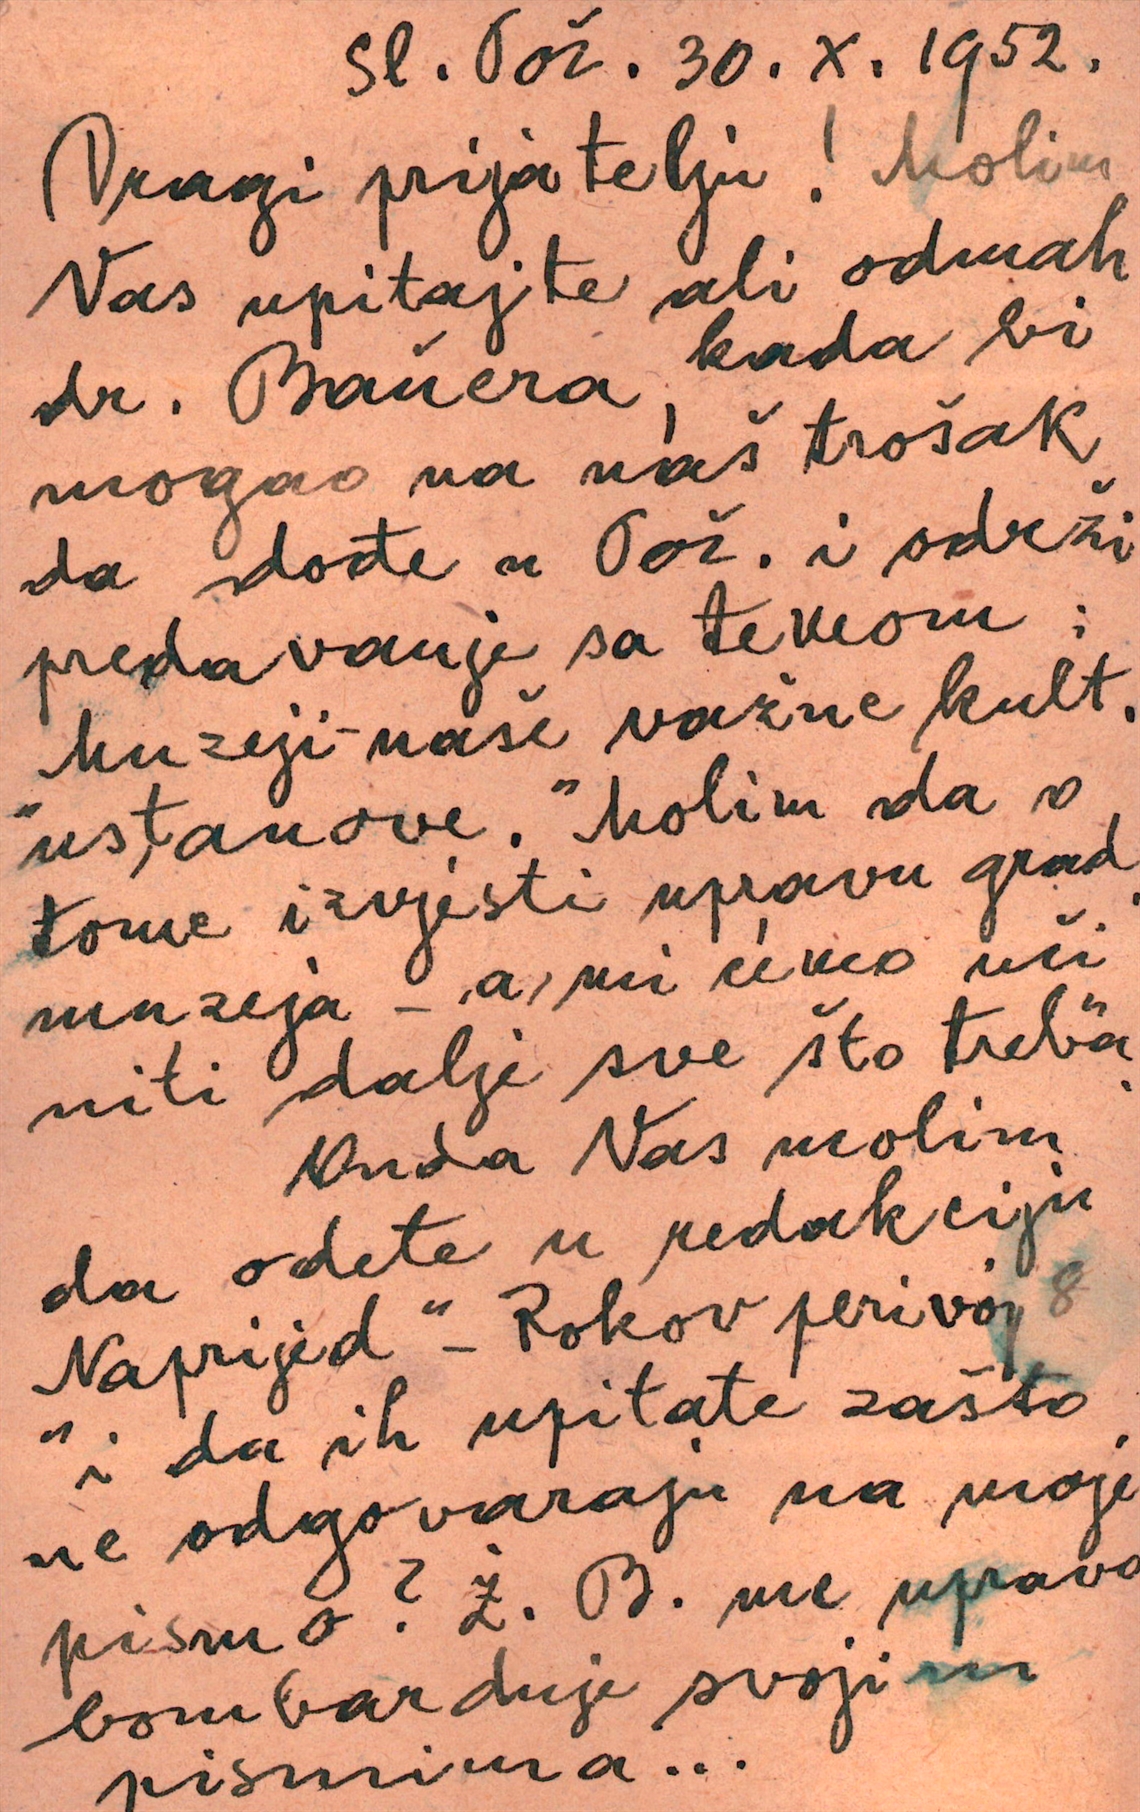 Sl. Pož. 30. X. 1952.
Dragi prijatelju! Molim
Vas upitajte ali odmah
dr. Bauera, kada bi
mogao na naš trošak
da dođe u Pož. i održi
predavanje sa temom:
Muzeji-naše važne kult.
"ustanove." Molim da o
tome izvjesti upravu grad.
muzeja - a mi ćemo uči
niti dalje sve što treba.
Onda Vas molim
da odete u redakciju
Naprijed" - Rokov perivoj 8
" i da ih upitate zašto
ne odgovaraju na moje
pismo? Ž. B. me upravo
bombarduje svojim
pismima...